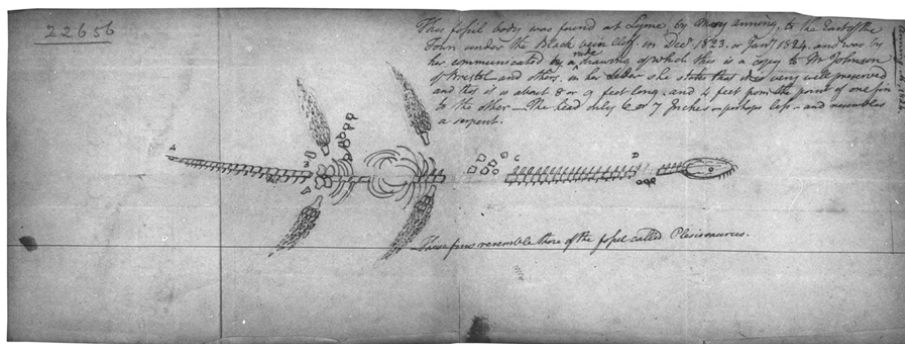 22656
This fossil body was found at Lyme, by Mary Anning, to the East of the
Town under the Black Cliff in Decr 1823. or Jany 1824. and was by
her communicated by a rude drawing of which this is a copy to Mr Johnson
of Bristol and others. in her Letter she states that it is very well preserved
and that it is about 8 or 9 feet long. and 4 feet from the point of one fin
to the other — The head only 6 or 7 Inches — perhaps less — and resembles
a serpent.
A
B
C
D
These fins resemble those of the fossil called Plesiosaurus.